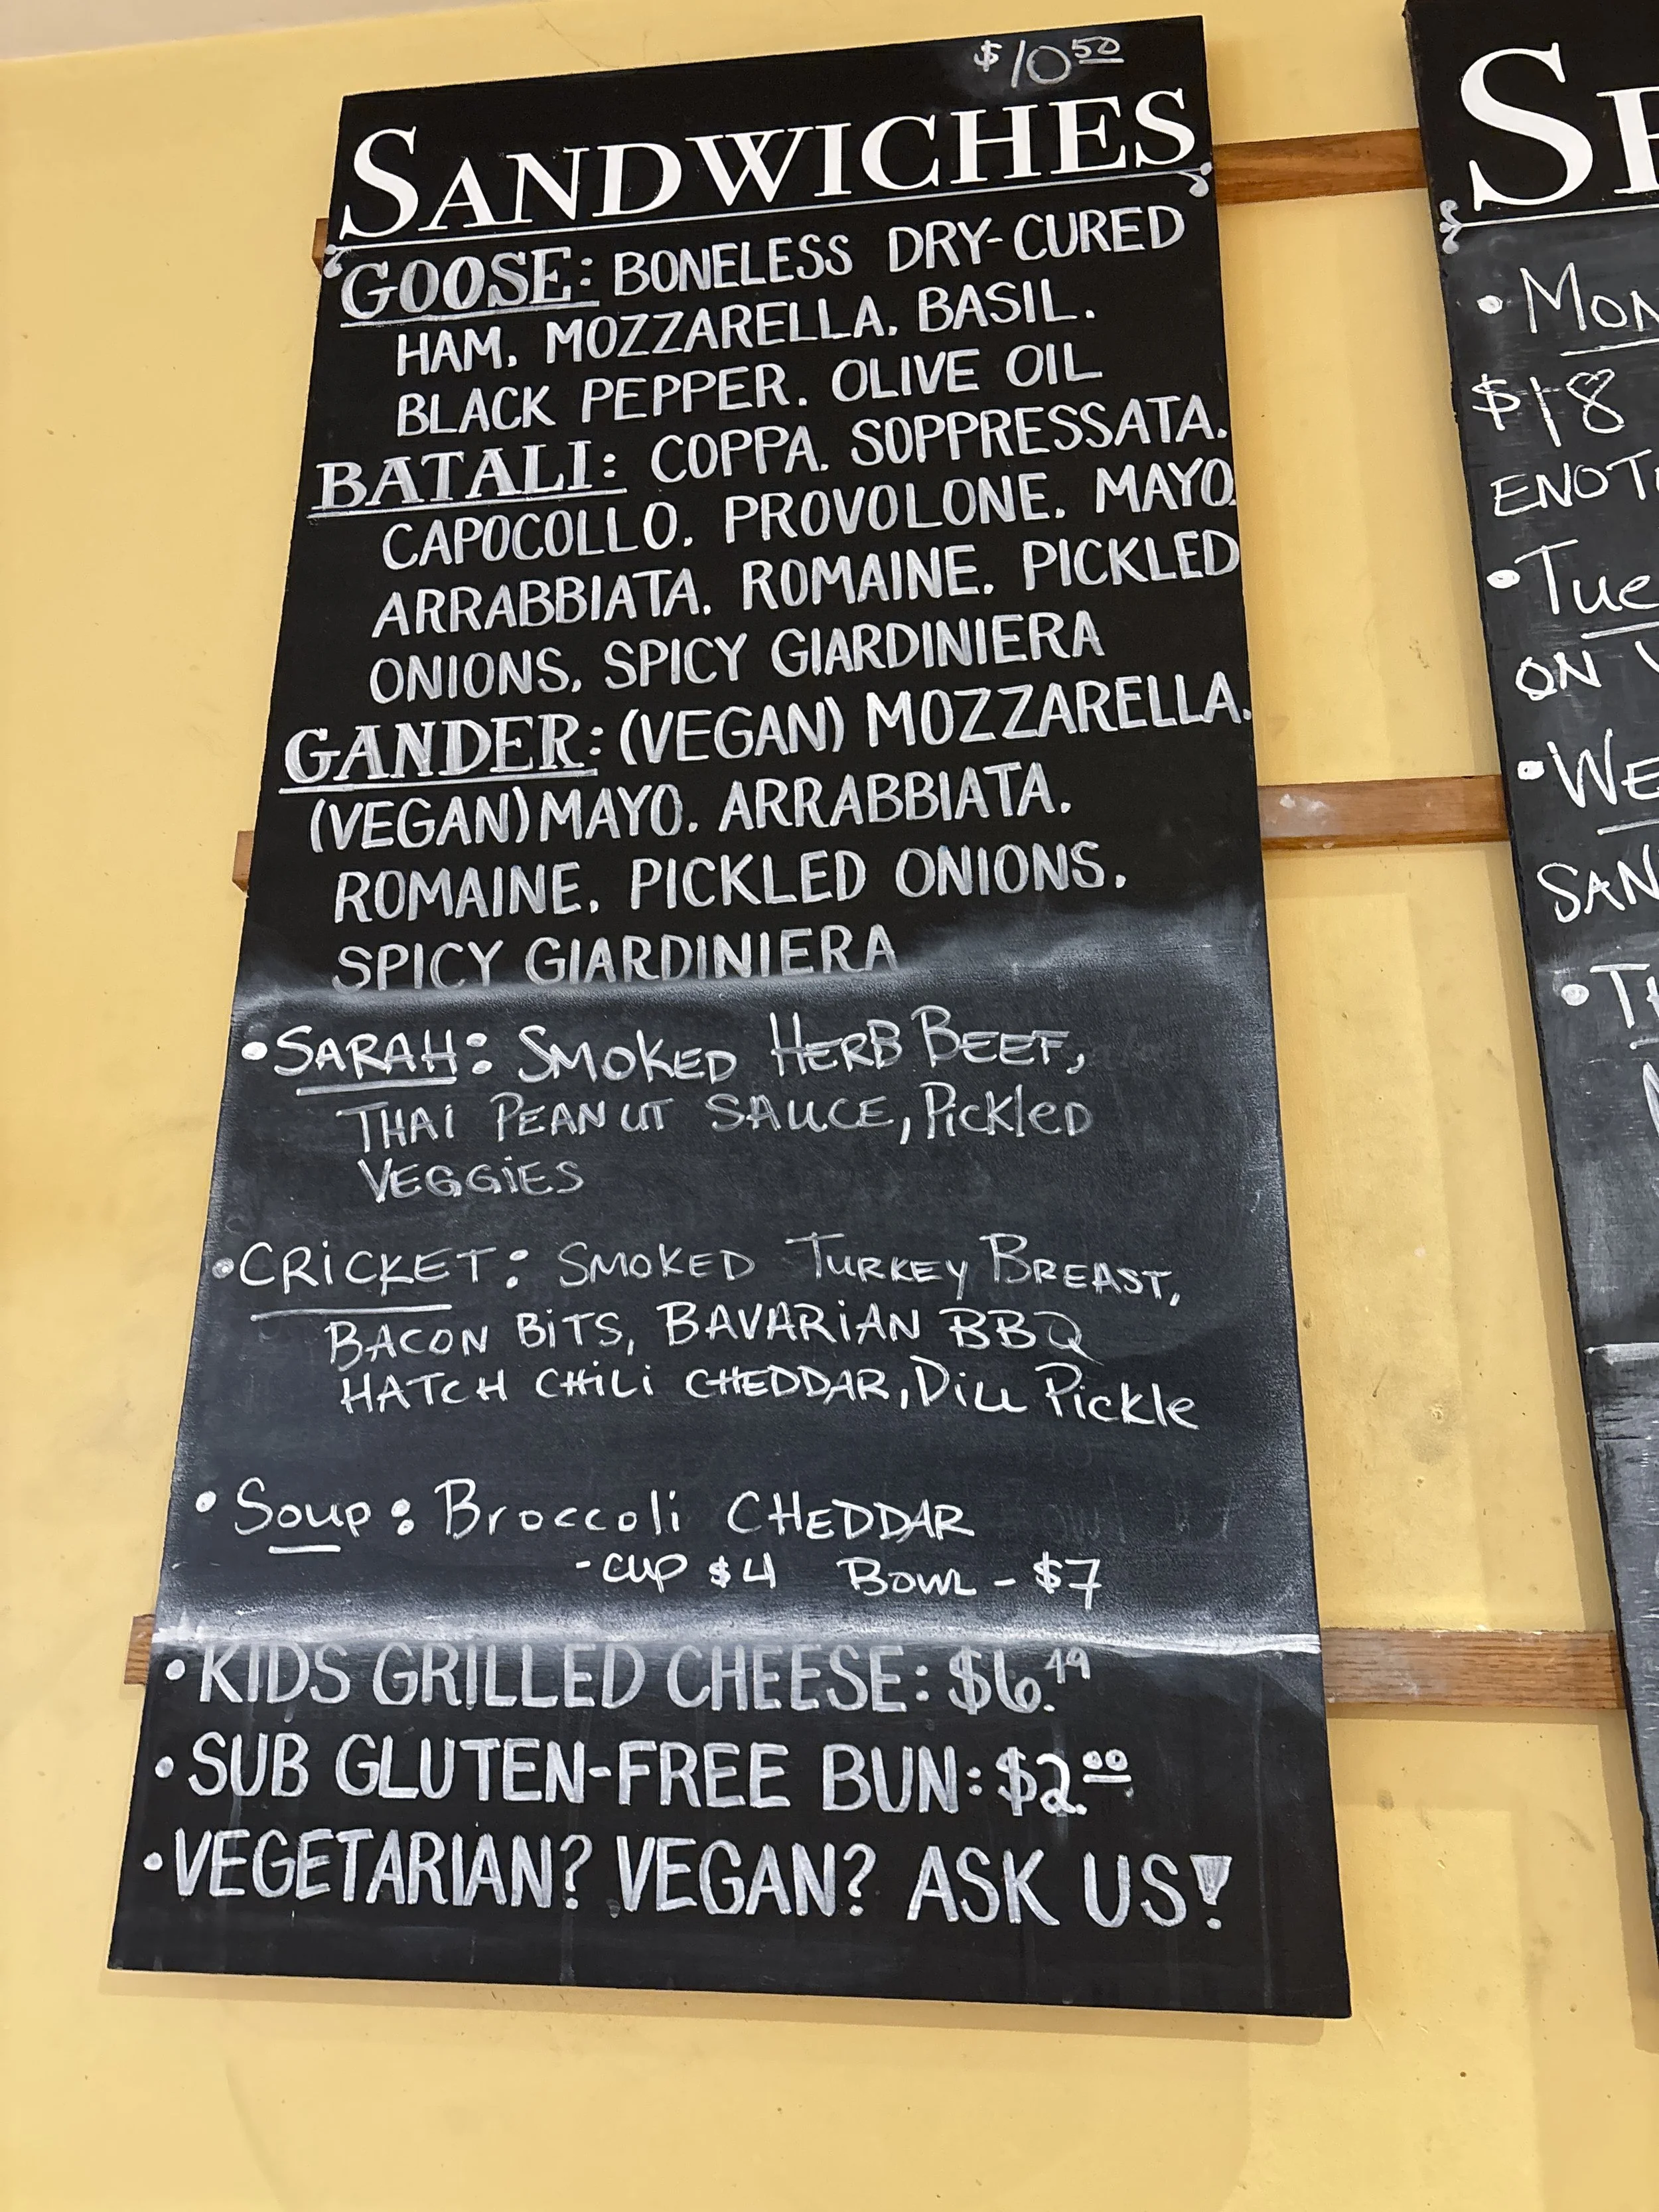 $10.50
SANDWICHES
GOOSE: BONELESS DRY-CURED
HAM, MOZZARELLA, BASIL,
BLACK PEPPER, OLIVE OIL
BATALI: COPPA, SOPPRESSATA,
CAPOCOLLO, PROVOLONE, MAYO,
ARRABBIATA, ROMAINE, PICKLED
ONIONS, SPICY GIARDINIERA
GANDER: (VEGAN) MOZZARELLA,
(VEGAN) MAYO, ARRABBIATA,
ROMAINE, PICKLED ONIONS,
SPICY GIARDINIERA
• SARAH: SMOKED HERB BEEF,
THAI PEANUT SAUCE, Pickled
VEGGIES
• CRICKET: SMOKED TURKEY BREAST,
BACON BITS, BAVARIAN BBQ
HATCH CHILI CHEDDAR, Dill Pickle
• Soup: Broccoli CHEDDAR
- CUP $4 BOWL - $7
• KIDS GRILLED CHEESE: $6.49
• SUB GLUTEN-FREE BUN: $2.00
• VEGETARIAN? VEGAN? ASK US!
• MON
$18
• Tue
ON
• WE
SAN
• TH